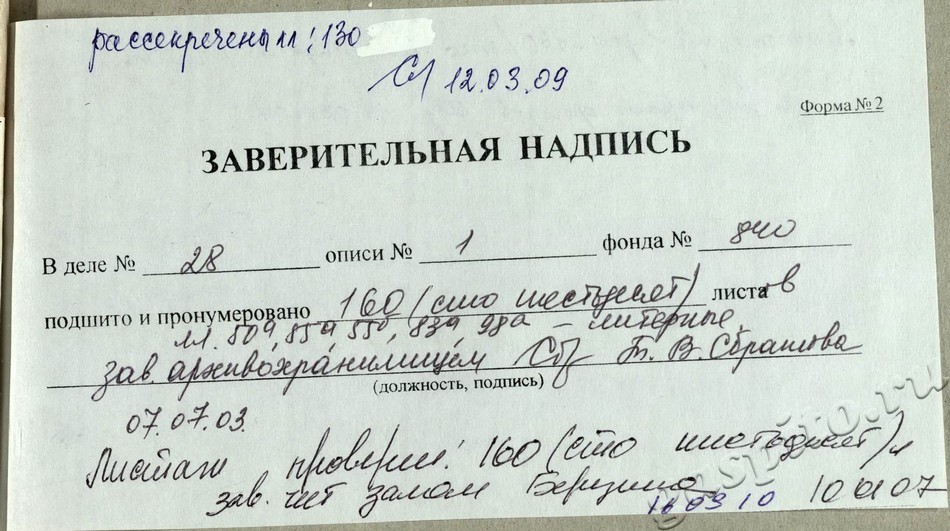 рассекречены лл: 130
12.03.09
Форма № 2
ЗАВЕРИТЕЛЬНАЯ НАДПИСЬ
В деле № 28 описи № 1 фонда № 840
подшито и пронумеровано 160 (сто шестьдесят) листов
лл. 50а, 85а, 55б, 83а, 98а – литерные
зав. архивохранилищем Т. В.
(должность, подпись)
07.07.03.
Листаж проверен: 160 (сто шестьдесят) л
зав. чит залом Берзина
16 03 10 10 01 07